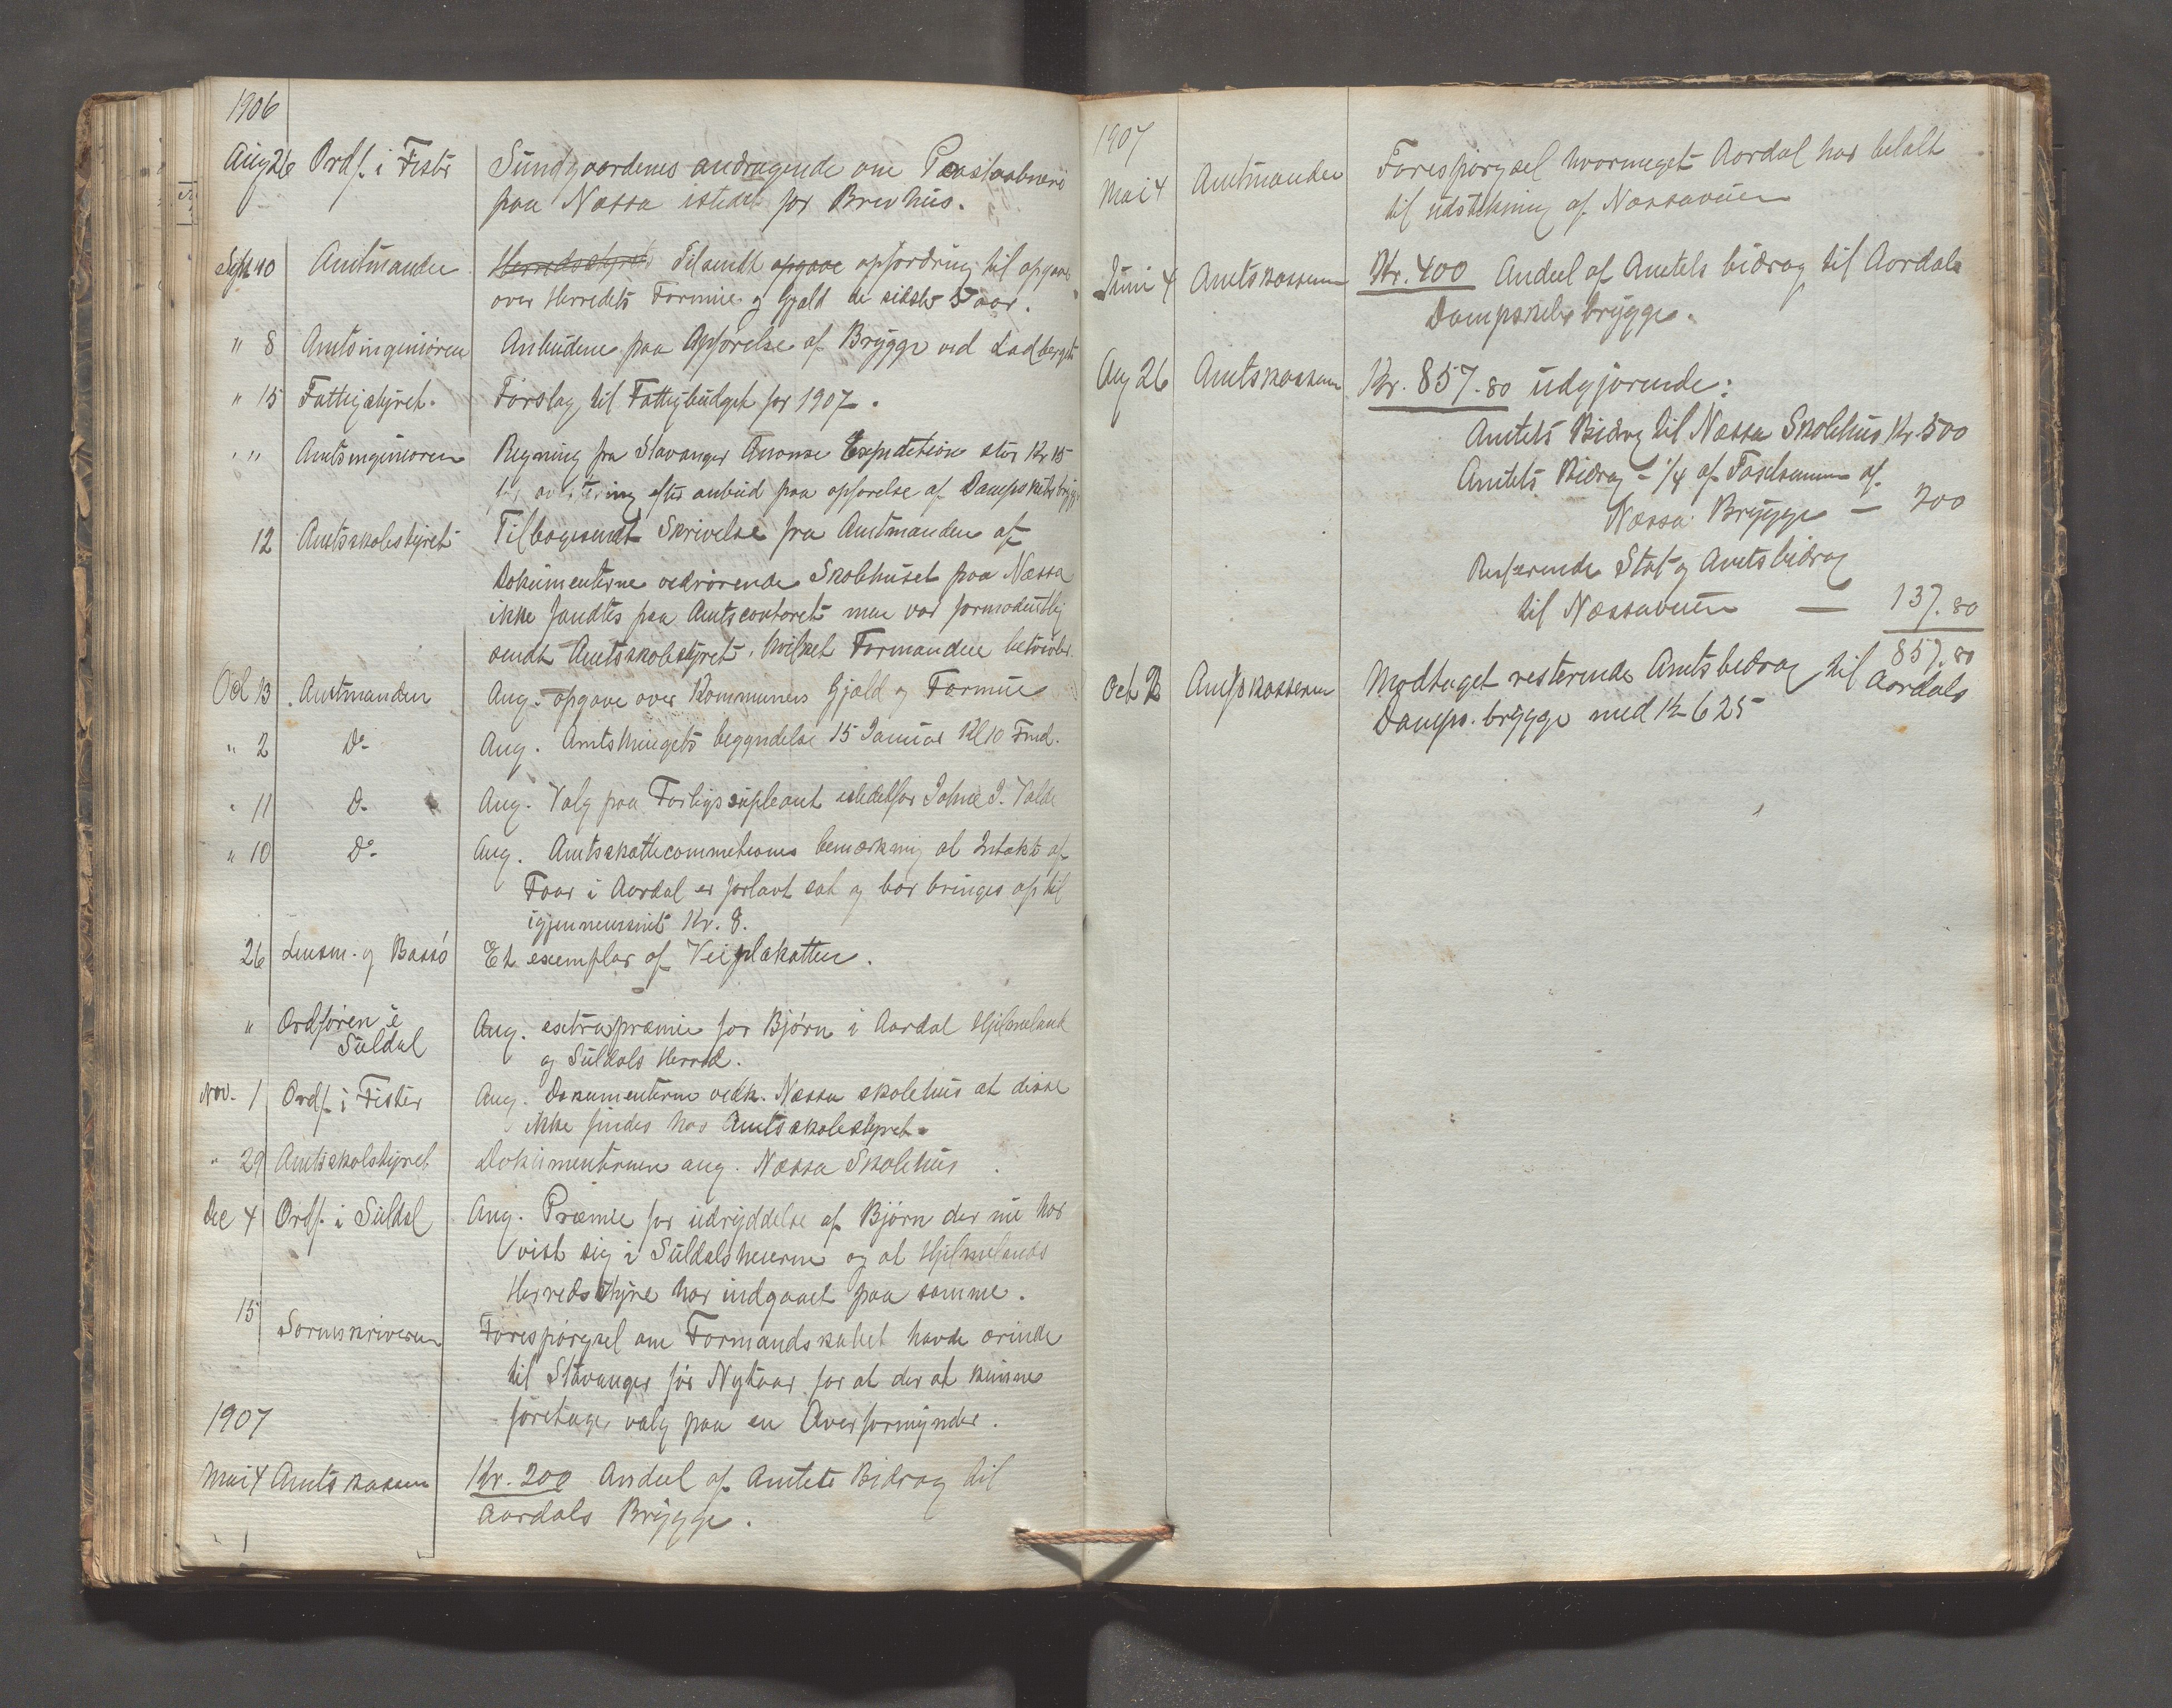 1906
Aug 26 Ordf. i Fister Sundgaardenes andragende om Poststaabneri
paa Næssa istedet for Brevhus.
Sept 10 Amtmanden Herredsstyret Tilsendt opgave opfordring til opgave
over Herredets Formue og Gjæld de sidste 5 aar.
" 8 Amtsingeniøren Anbudene paa Opførelse af Brygge ved Ladberget
" 15 Fattigstyret. Forslag til Fattigbudget for 1907.
" " Amtsingeniøren Regning fra Stavanger Anonse Expedition stor Kr 15
efter anbud paa opførelse af Dampskibsbrygge
12 Amtsskolestyret Tilbagesendt Skrivelse fra Amtmanden at
Dokumenterne vedrørende Skolehuset paa Næssa
ikke fandtes paa Amtscontoret men var formodentlig
sendt Amtsskolestyret, hvilket Formanden betvivler.
Oct 13 Amtmanden Ang. opgave over Kommunens Gjæld og Formue
" 2 Do Ang. Amtsthingets begyndelse 15 Januar Kl 10 Fmd.
" 11 Do Ang. Valg paa Forligssupleant istedetfor Johne J. Valde
" 10 Do Ang. Amtsskattecommitionens bemærkning at Intækt af
Faar i Aardal er forlavt sat og bør bringes op til
igjennemsnit Kr. 8.
26 Lensm. og Bassø Et exemplar af Veiplakatten.
" Ordføren i
Suldal
Ang. extrapræmie for Bjørn i Aardal Hjelmeland
og Suldals Herred.
Nov. 1 Ordf. i Fister Ang. Dokumenterne vedk. Næssa skolehus at disse
ikke findes hos Amtsskolestyret.
" 29 Amtsskolstyret Dokumenternen ang. Næssa Skolehus
Dec 4 Ordf. i Suldal Ang. Præmie for udryddelse af Bjørn der nu har
vist sig i Suldalsheierne og at Hjelmelands
Herredsstyre har indgaaet paa samme.
15 Sorenskriveren Forespørgsel om Formandskabet havde ærinde
til Stavanger før Nytaar for at der at kunne
foretage valg paa en Overformynder.
1907
Mai 4 Amtskassern Kr. 200 Andeel af Amtets Bidrag til
Aardals Brygge.
1907
Mai 4 Amtmanden Forespørgsel hvormeget Aardal har betalt
til udstikning af Næssaveien
Juni 4 Amtskassern Kr. 400 Andeel af Amtets bidrag til Aardals
Dampskibsbrygge.
Aug 26 Amtskassern Kr. 857.80 udgjørende:
Amtets Bidrag til Næssa Skolehus Kr. 500
Amtets Bidrag - 1/4 af af
Næssa Brygge — 200
Stat og Amtsbidrag
til Næssaveien — 137.80
857.80
Oct Amtskasseren Modtaget resterende Amtsbidrag til Aardals
Damps. brygge med Kr 625